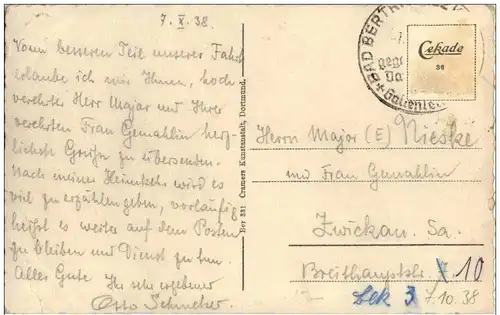 7. X. 38.
Vom besseren Teil unserer Fahrt
erlaube ich mir Ihnen, hoch
verehrter Herr Major und Ihrer
verehrten Frau Gemahlin herz-
lichste Grüße zu übersenden.
Nach meiner Heimkehr wird es
viel zu erzählen geben, vorläufig
heißt es weiter auf dem Posten
zu bleiben und Dienst zu tun.
Alles Gute
Ihr sehr ergebener
Otto
Ber 331 Cramers Kunstanstalt, Dortmund.
BAD BERTRICH
gege
Gallenlei
Cekade
36
Herrn Major (E) Nieske
und Frau Gemahlin
Zwickau. Sa.
Breithauptstr. 7 10
7.10.38